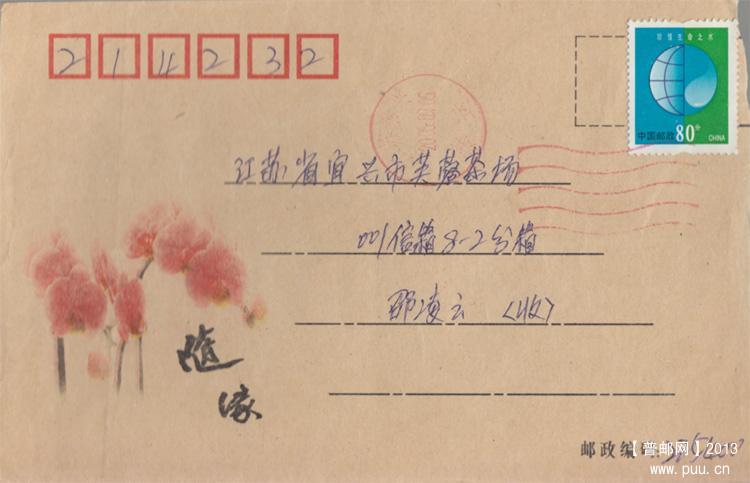 214232
珍惜生命之水
中国邮政 80分 CHINA
江苏省宜兴市芙蓉茶场
001信箱8-2分箱
邵凌云 〈收〉
随
缘
邮政编
【普邮网】2013
www.puu.cn